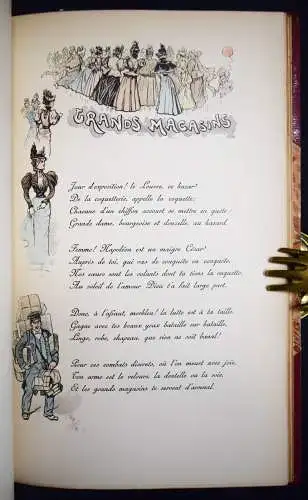 GRANDS MAGASINS
Jour d'exposition! le Louvre, ce bazar!
De la coquetterie, appelle la coquette;
Chacune d'un chiffon accourt se mettre en quête
Grande dame, bourgeoise et donzelle, au hasard.
Femme! Napoléon est un maigre César!
Auprès de toi, qui vas de conquête en conquête.
Nos cœurs sont les volants dont tu tiens la raquette
Au soleil de l'amour Dieu t'a fait large part.
Donc, à l'assaut, morbleu! la lutte est à ta taille.
Gagne avec tes beaux yeux bataille sur bataille,
Linge, robe, chapeau, que rien ne soit banal!
Pour ces combats discrets, où l'on meurt avec joie,
Ton arme est le velours, la dentelle ou la soie,
Et les grands magasins te servent d'arsenal.